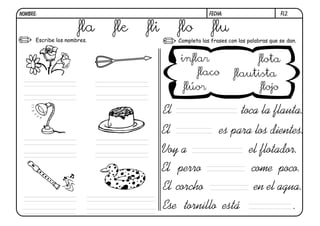 NOMBRE: FECHA: FL2.
fla fle fli flo flu
Escribe los nombres.
Completa las frases con las palabras que se dan.
inflar flota
flaco flautista
flúor flojo
El toca la flauta.
El es para los dientes.
Voy a el flotador.
El perro come poco.
El corcho en el agua.
Ese tornillo está .